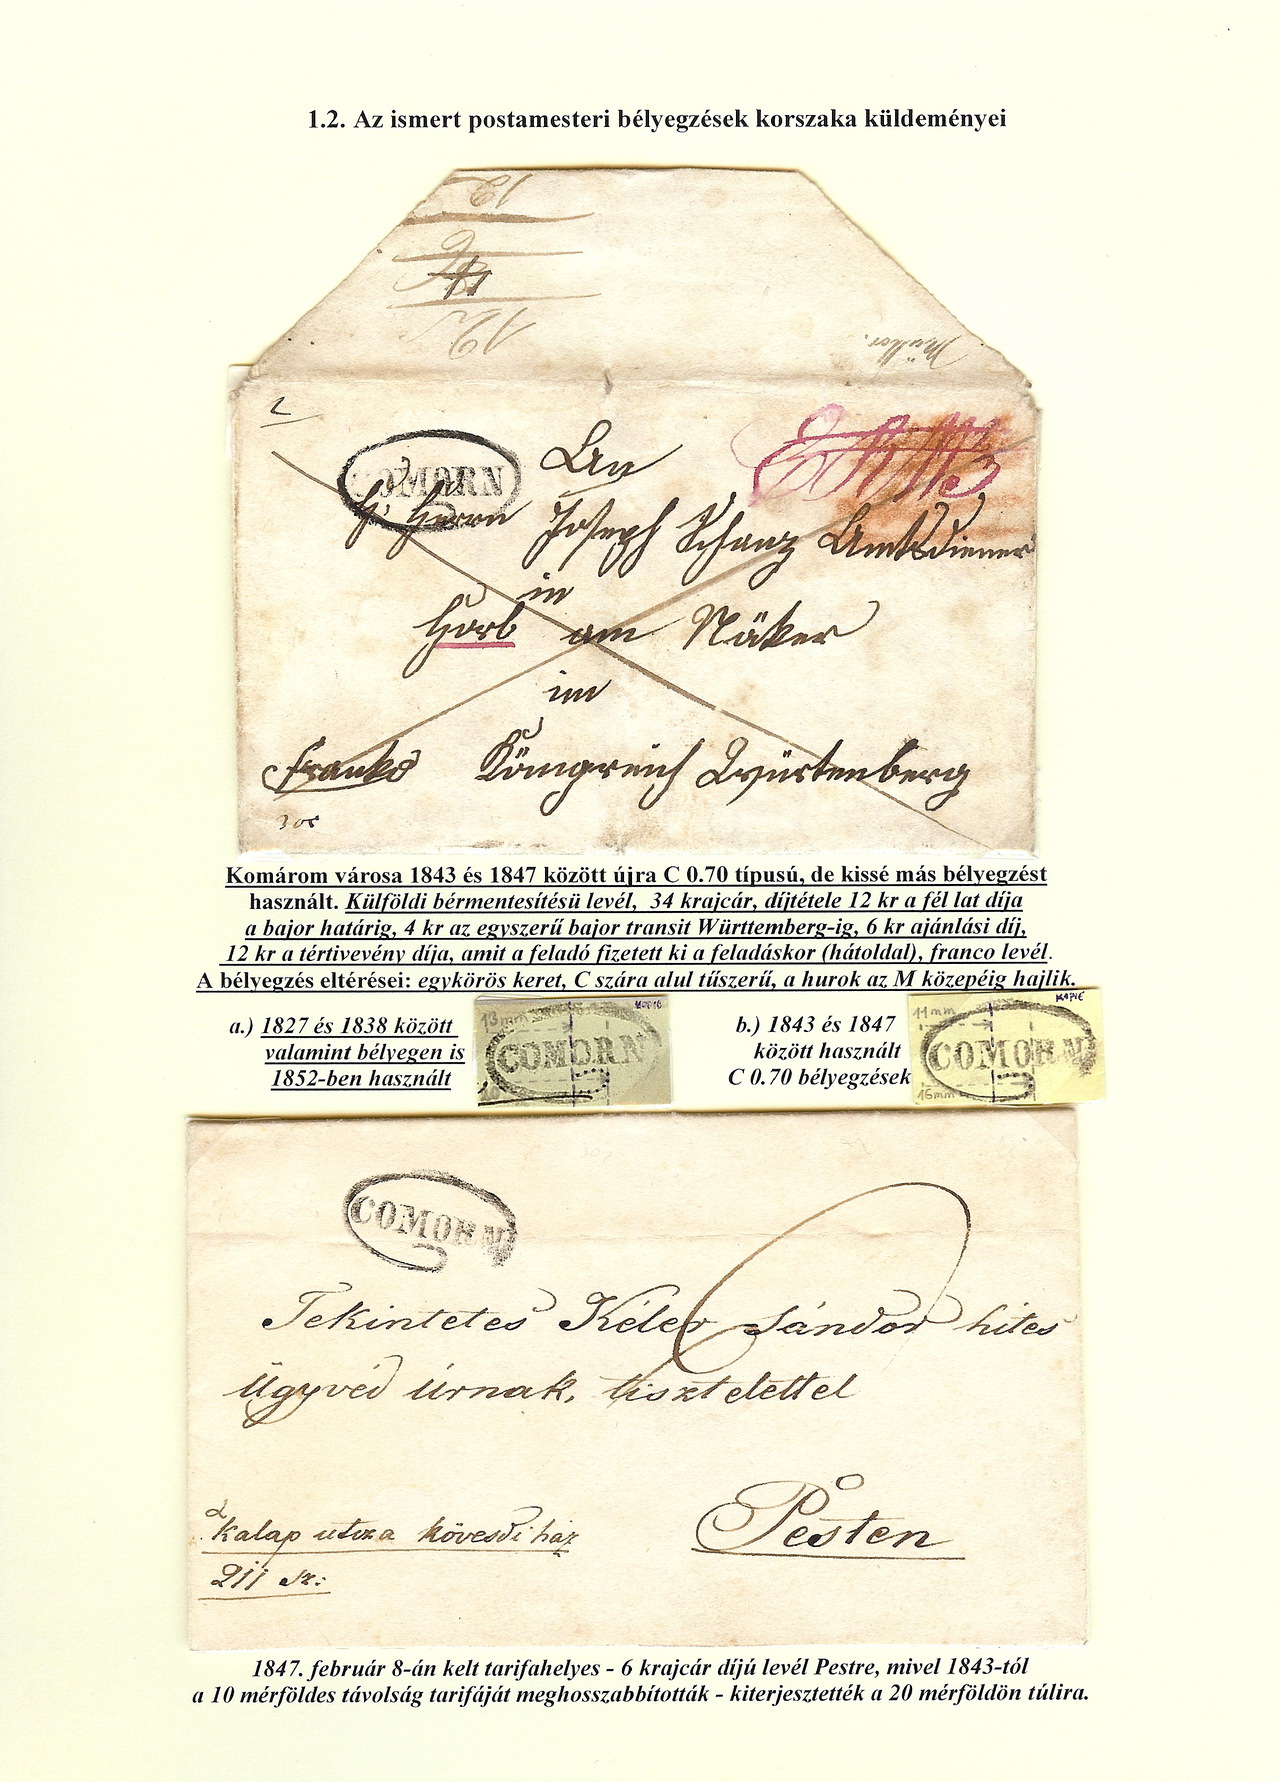 1.2. Az ismert postamesteri bélyegzések korszaka küldeményei
12
12
Müller.
COMORN
An
H. Herrn Joseph Schanz Amtsdiener
in
Horb am Näker
im
Franko Königreich Würtenberg
Komárom városa 1843 és 1847 között újra C 0.70 típusú, de kissé más bélyegzést
használt. Külföldi bérmentesítésü levél, 34 krajcár, díjtétele 12 kr a fél lat díja
a bajor határig, 4 kr az egyszerű bajor transit Württemberg-ig, 6 kr ajánlási díj,
12 kr a tértivevény díja, amit a feladó fizetett ki a feladáskor (hátoldal), franco levél.
A bélyegzés eltérései: egykörös keret, C szára alul tűszerű, a hurok az M közepéig hajlik.
a.) 1827 és 1838 között
valamint bélyegen is
1852-ben használt
KOPIE
13 mm
COMORN
b.) 1843 és 1847
között használt
C 0.70 bélyegzések
KOPIE
11 mm
COMORN
16 mm
COMORN
Tekintetes Kéler Sándor hites
ügyvéd úrnak, tisztelettel
Pesten
Kalap utcza kövesdi ház
211 sz:
1847. február 8-án kelt tarifahelyes - 6 krajcár díjú levél Pestre, mivel 1843-tól
a 10 mérföldes távolság tarifáját meghosszabbították - kiterjesztették a 20 mérföldön túlira.